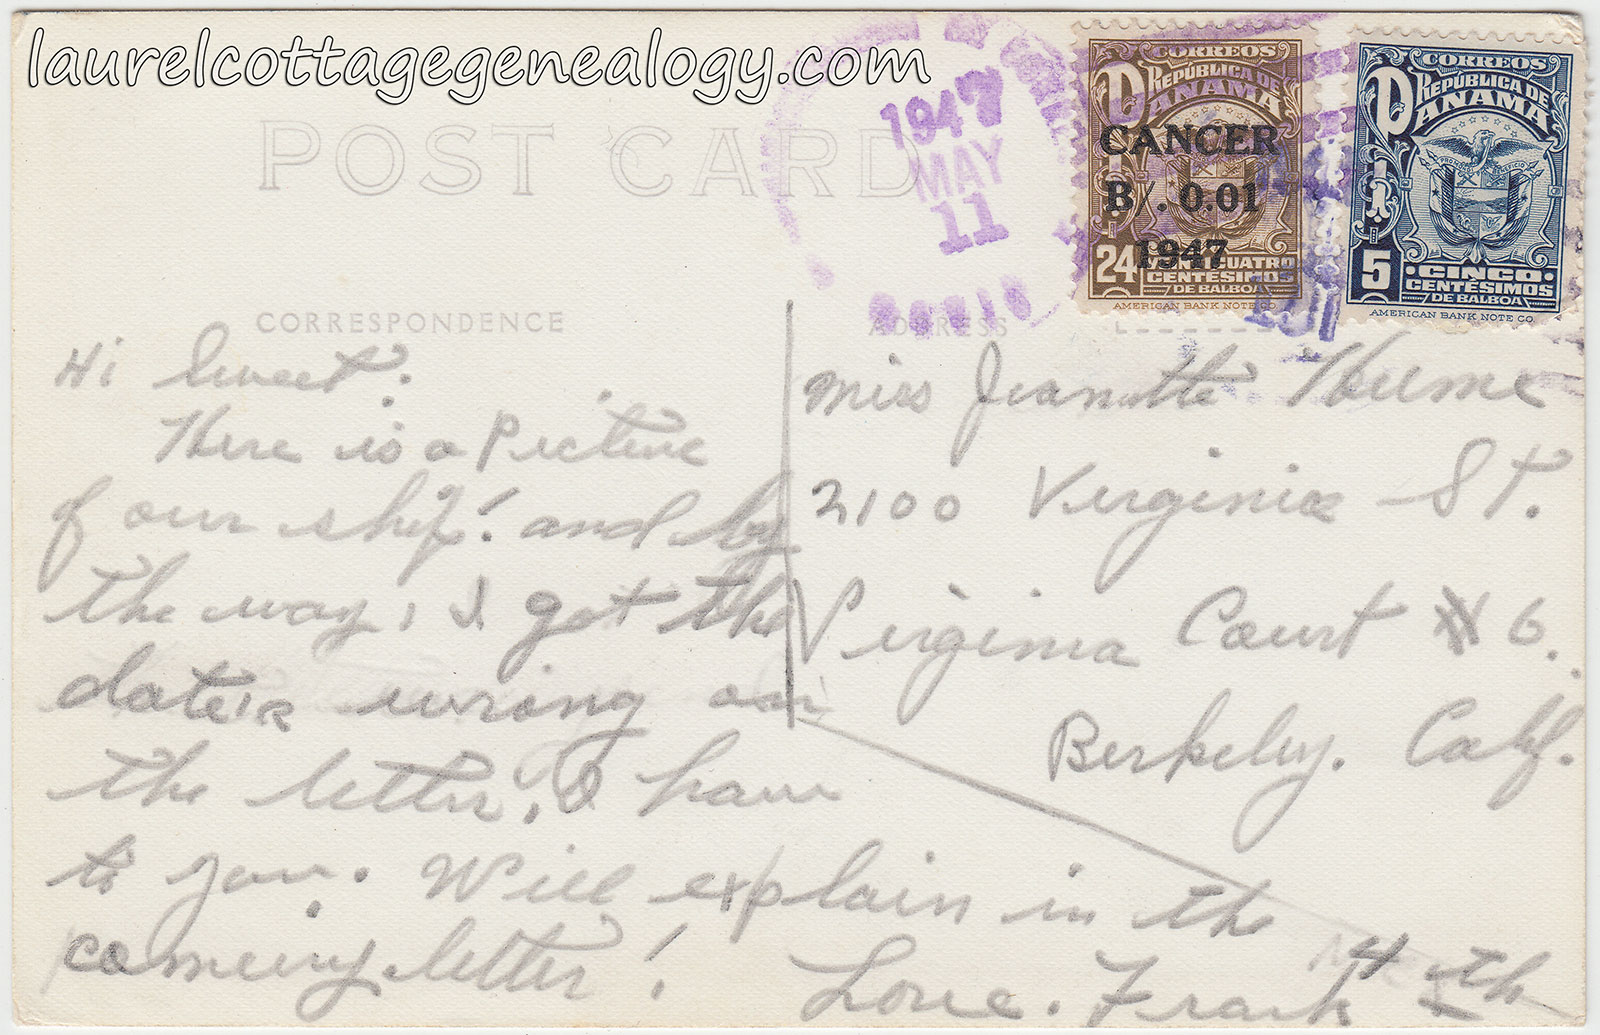 laurelcottagegenealogy.com
POST CARD
1947
MAY
11
CORREOS
REPÚBLICA DE
PANAMA
CANCER
B/. 0.01
1947
24 VEINTICUATRO
CENTÉSIMOS
DE BALBOA
AMERICAN BANK NOTE CO.
CORREOS
REPÚBLICA DE
PANAMA
5 CINCO
CENTÉSIMOS
DE BALBOA
AMERICAN BANK NOTE CO.
CORRESPONDENCE
ADDRESS
Hi Sweet.
Here is a Picture
of our ship! and by
the way, I got the
date's wrong on
the letter, I have
to you. Will explain in the
coming letter!
Love. Frank 4th
Miss Jeanette Hume
2100 Virginia St.
Virginia Court # 6.
Berkeley. Calif.